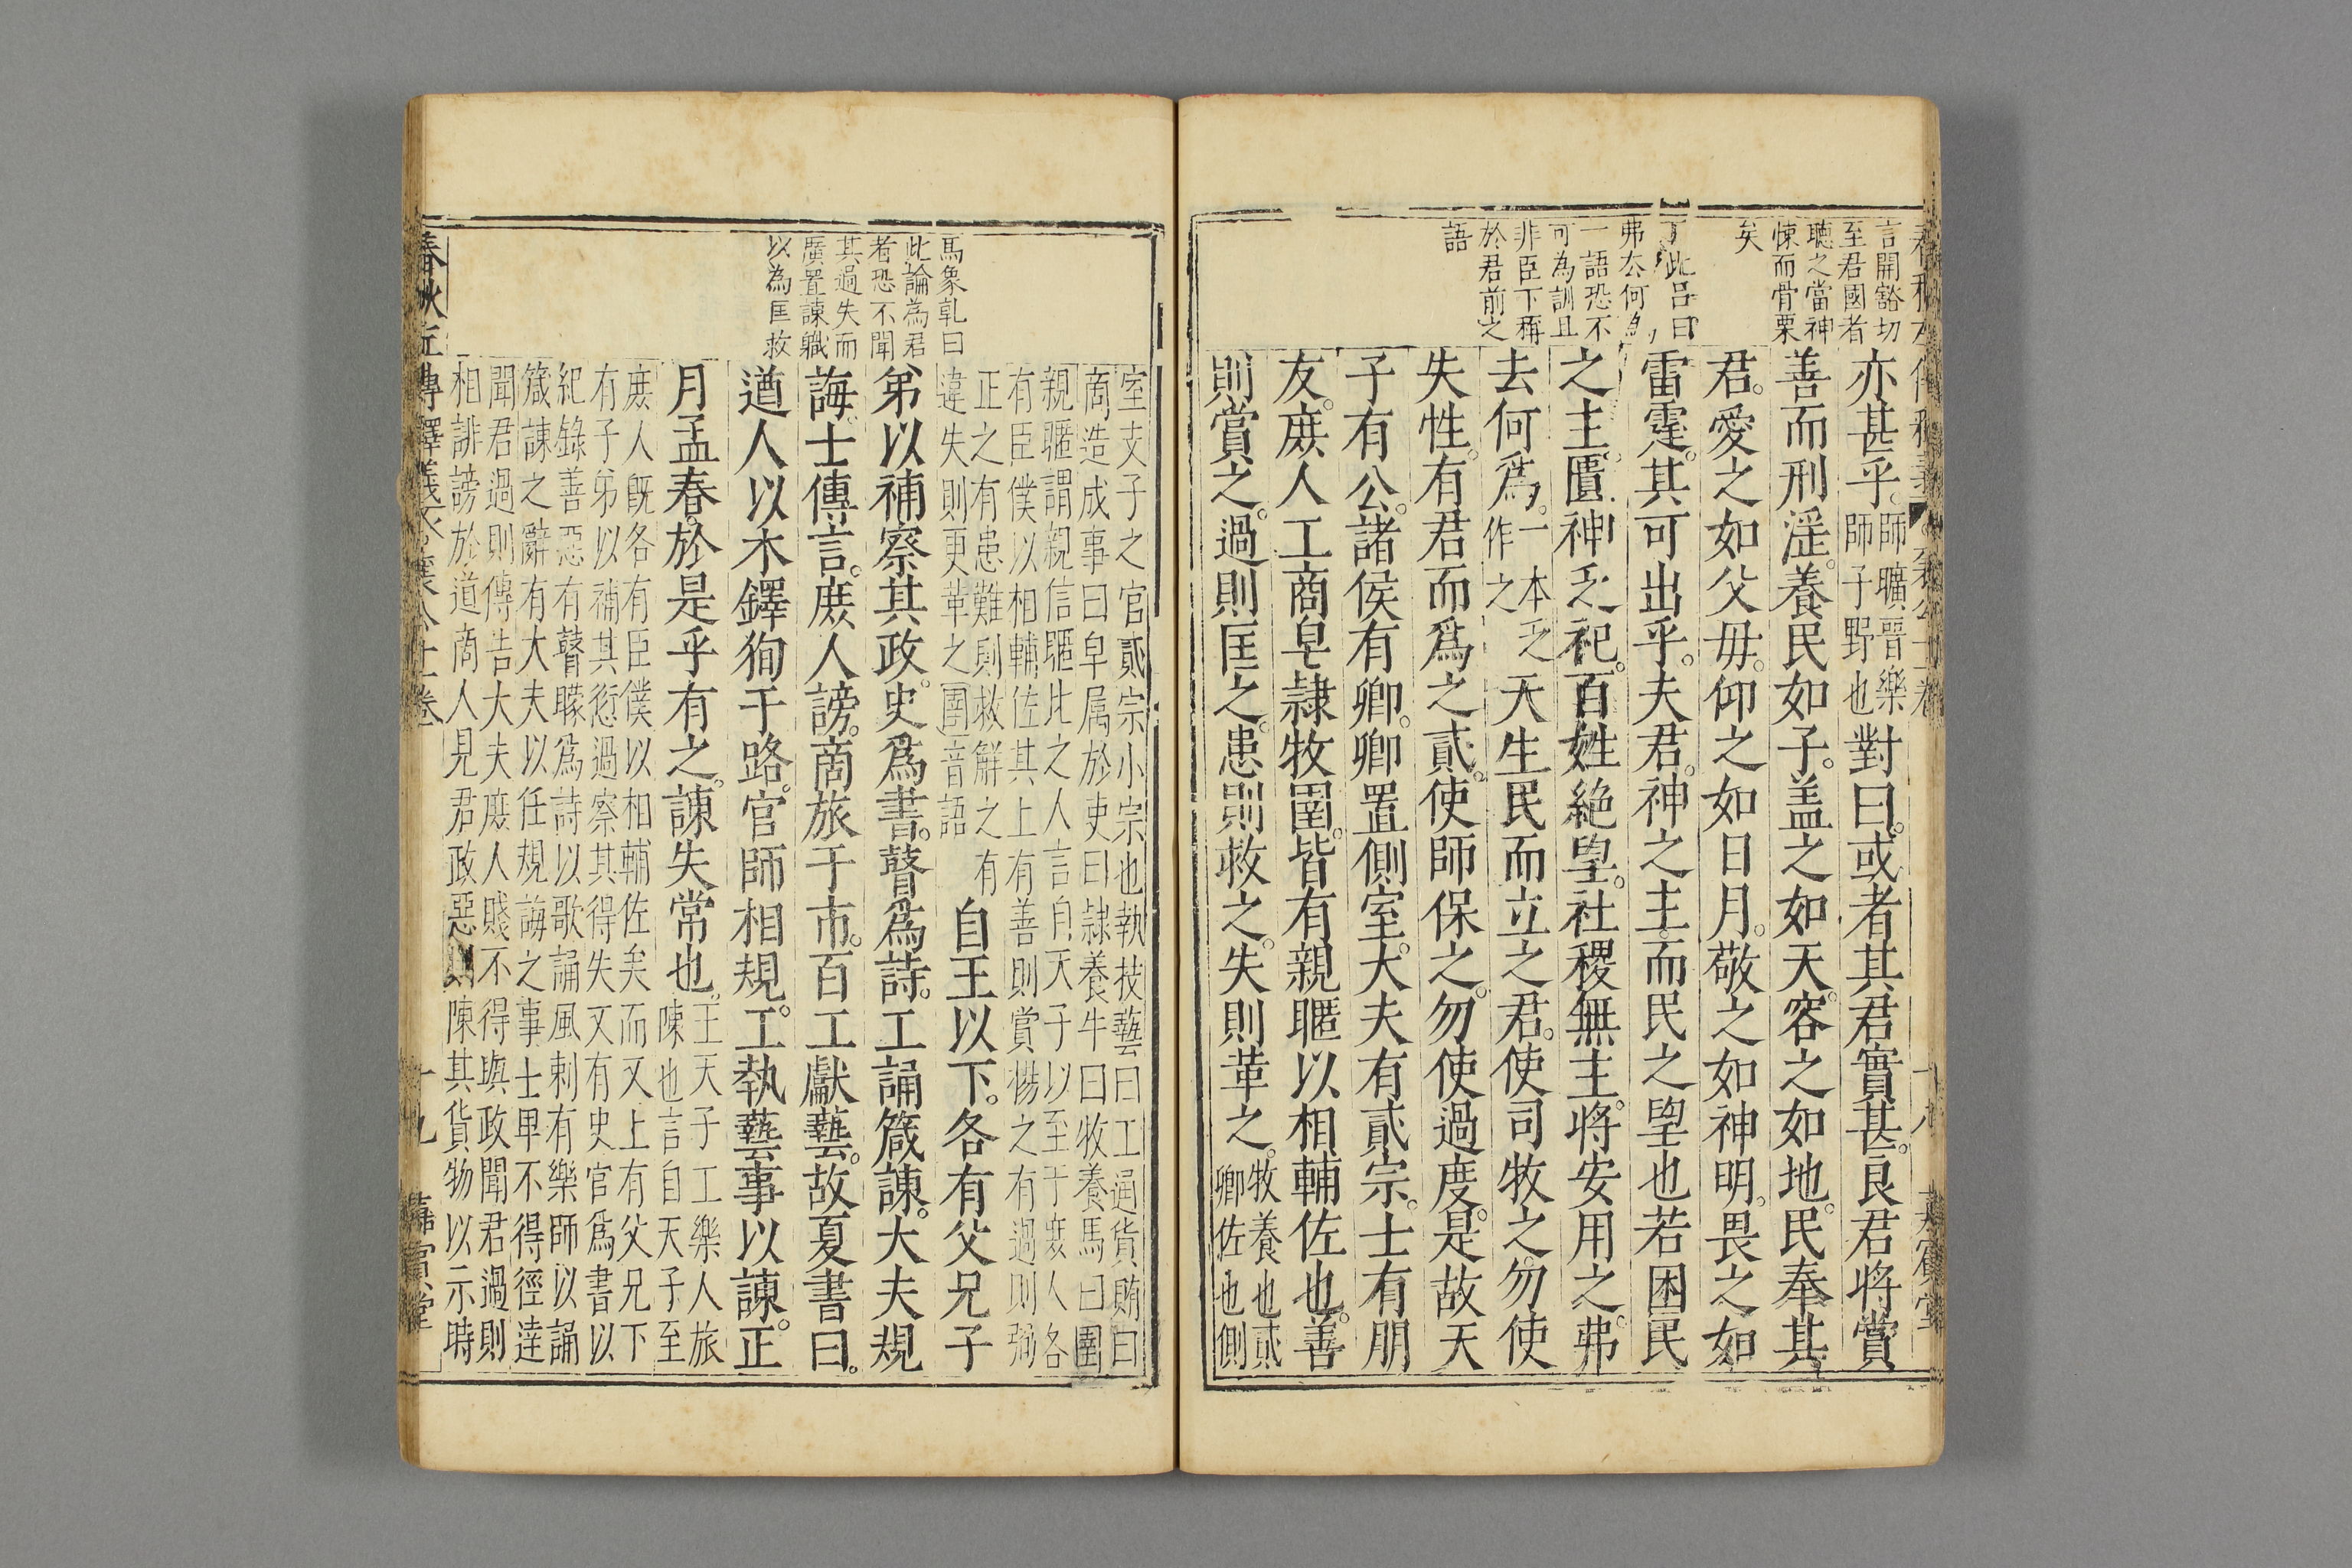 言開豁切
至君國者
聽之當神
悚而骨栗
矣
丁此呂曰
弗去何為
一語恐不
可為訓且
非臣下稱
於君前之
語
亦甚乎。師曠晉樂師子野也對曰。或者其君實甚。良君將賞
善而刑淫。養民如子。盖之如天。容之如地。民奉其
君。愛之如父毋。仰之如日月。敬之如神明。畏之如
雷霆。其可出乎。夫君。神之主。而民之朢也若困民
之主。匱神乏祀。百姓絶朢。社稷無主。將安用之。弗
去何爲。一本乏作之天生民而立之君。使司牧之。勿使
失性。有君而爲之貳。使師保之。勿使過度。是故天
子有公。諸侯有卿。卿置側室。大夫有貳宗。士有朋
友。庶人工商皂隷牧圉。皆有親暱以相輔佐也。善
則賞之。過則匡之。患則救之。失則革之。牧養也貳卿佐也側
馬象乹曰
此論為君
者恐不聞
其過失而
廣置諫職
以為匡救
室支子之官貳宗小宗也執技藝曰工通貨賄曰
商造成事曰皁属於吏曰隷養牛曰牧養馬曰圉
親暱謂親信暱比之人言自天子以至于庻人各
有臣僕以相輔佐其上有善則賞揚之有過則弼
正之有患難則救解之有
違失則更革之圉音語自王以下。各有父兄子
弟以補察其政。史爲書。瞽爲詩。工誦箴諫。大夫規
誨。士傳言。庶人謗。商旅于市。百工獻藝。故夏書曰。
遒人以木鐸狥于路。官師相規。工執藝事以諫。正
月孟春。於是乎有之。諫失常也。王天子工樂人旅陳也言自天子至
庶人旣各有臣僕以相輔佐矣而又上有父兄下
有子弟以補其愆過察其得失又有史官爲書以
紀錄善惡有瞽矇爲詩以歌誦風刺有樂師以誦
箴諫之辭有大夫以任規誨之事士卑不得徑達
聞君過則傳告大夫庶人賤不得與政聞君過則
相誹謗於道商人見君政惡則陳其貨物以示時
十九